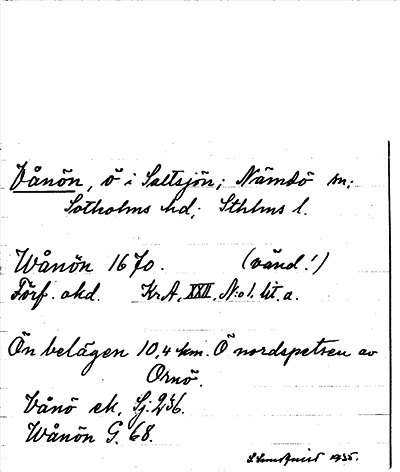 Vånön, ö i Saltsjön; Nämdö sn;
Sotholms hd; Sthlms l.
Wånön 1670. (vänd!)
Förf. okd. KrA, XXII, N:o 1. lit. a.
Ön belägen 10,4 km. Ö nordspetsen av
Ornö.
Vånö ek, Sj: 236.
Wånön G. 68.
S. Lundquist 1935.